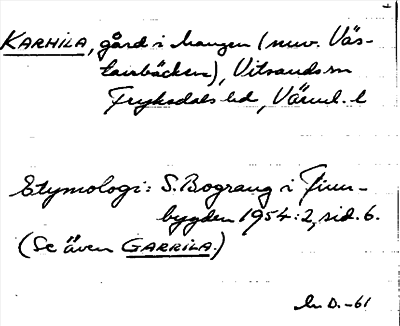 KARHILA, gård i Mangen (nuv. Väs-
tanbäcken), Vitsands sn
Fryksdals hd, Värml. l
Etymologi: S. Bograng i Finn-
bygden 1954:2, sid. 6.
(Se även GARRILA.)
D. -61